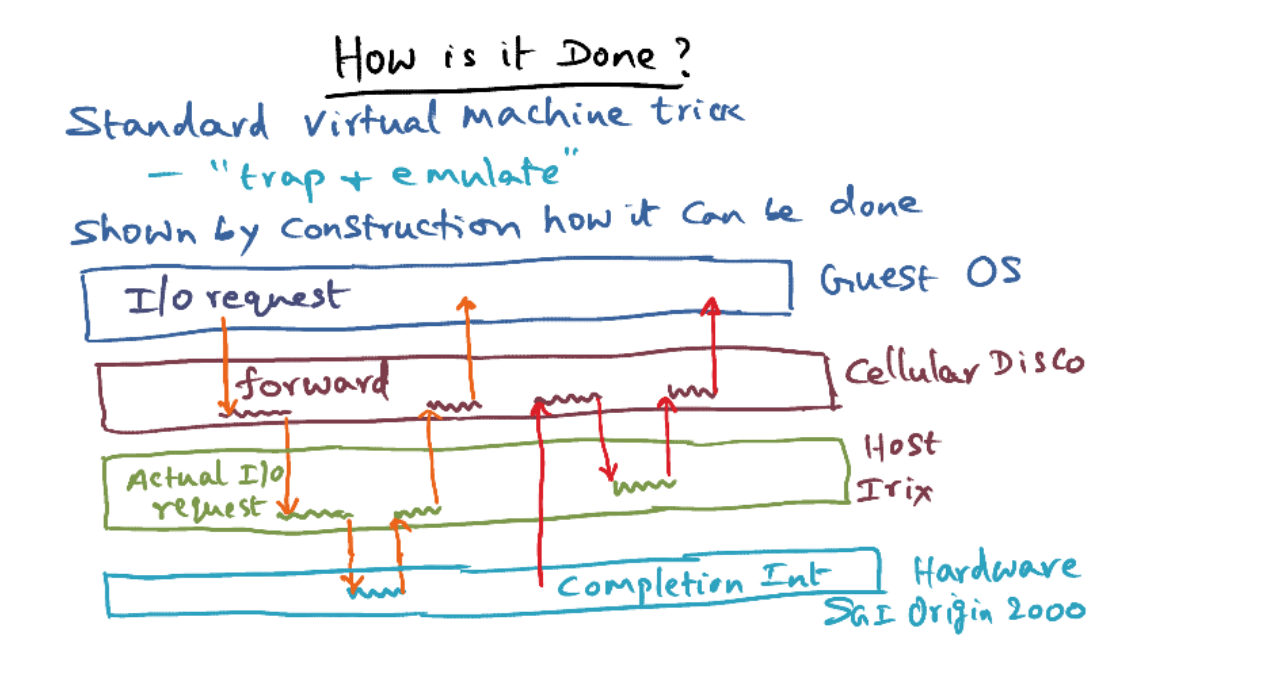 How is it Done?
Standard virtual machine trick
- "trap + emulate"
Shown by Construction how it can be done
I/o request
Guest OS
forward
Cellular Disco
Actual I/o
request
Host
Irix
Completion Int
Hardware
SGI Origin 2000